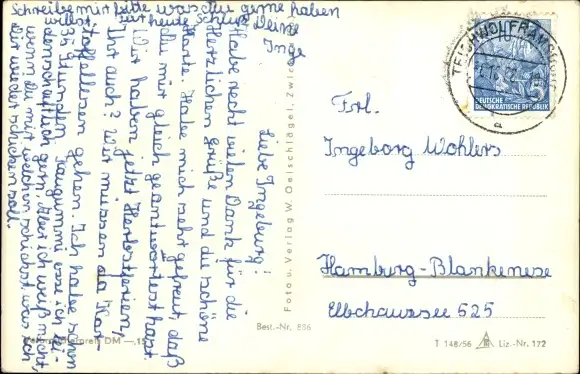 Liebe Ingeburg!
Habe recht vielen Dank für die
Herzlichen Grüße und die schöne
Karte. Habe mich sehr gefreut, daß
du mir gleich geantwortest hast.
Wir haben jetzt Herbstferien,
Ihr auch? Wir müssen da Kar-
toffellesen gehen. Ich habe schon
35 Stunden. Kaugummi esse ich lei-
denschaftlich gern. Aber ich weiß nicht,
wenn du mir welchen schickst was ich
dir wieder schicken soll.
Schreibe mir bitte was du gerne haben
willst. Für heute Schluß Deine
Inge
Foto u. Verlag W. Oelschlägel, Zwi
Best.-Nr. 886
DM —,15
TEICHWOLFRAMSDORF
a
DEUTSCHE
DEMOKRATISCHE REPUBLIK
5
Frl.
Ingeborg Wohlers
Hamburg-Blankenese
Elbchaussee 525
T 148/56 Liz.-Nr. 172